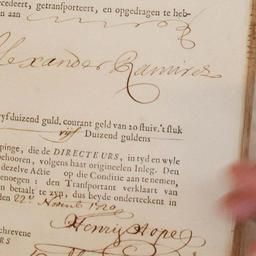 cedeert, getransporteert, en opgedragen te heb-
n aan
Alexander Ramirez
yfduizend guld. courant geld van 20 stuiv. 't stuk
vyf Duizend guldens
pinge, die de DIRECTEURS, in tyd en wyle
behooren, volgens haar origineelen Inleg. Den
dezelve Actie op die Conditie aan te nemen,
enoegen: den Transportant verklaart van
n betaalt te zyn, dus beyde onderteekent in
den 22 Novemb 1720
Henry Hope
schrevene
RS